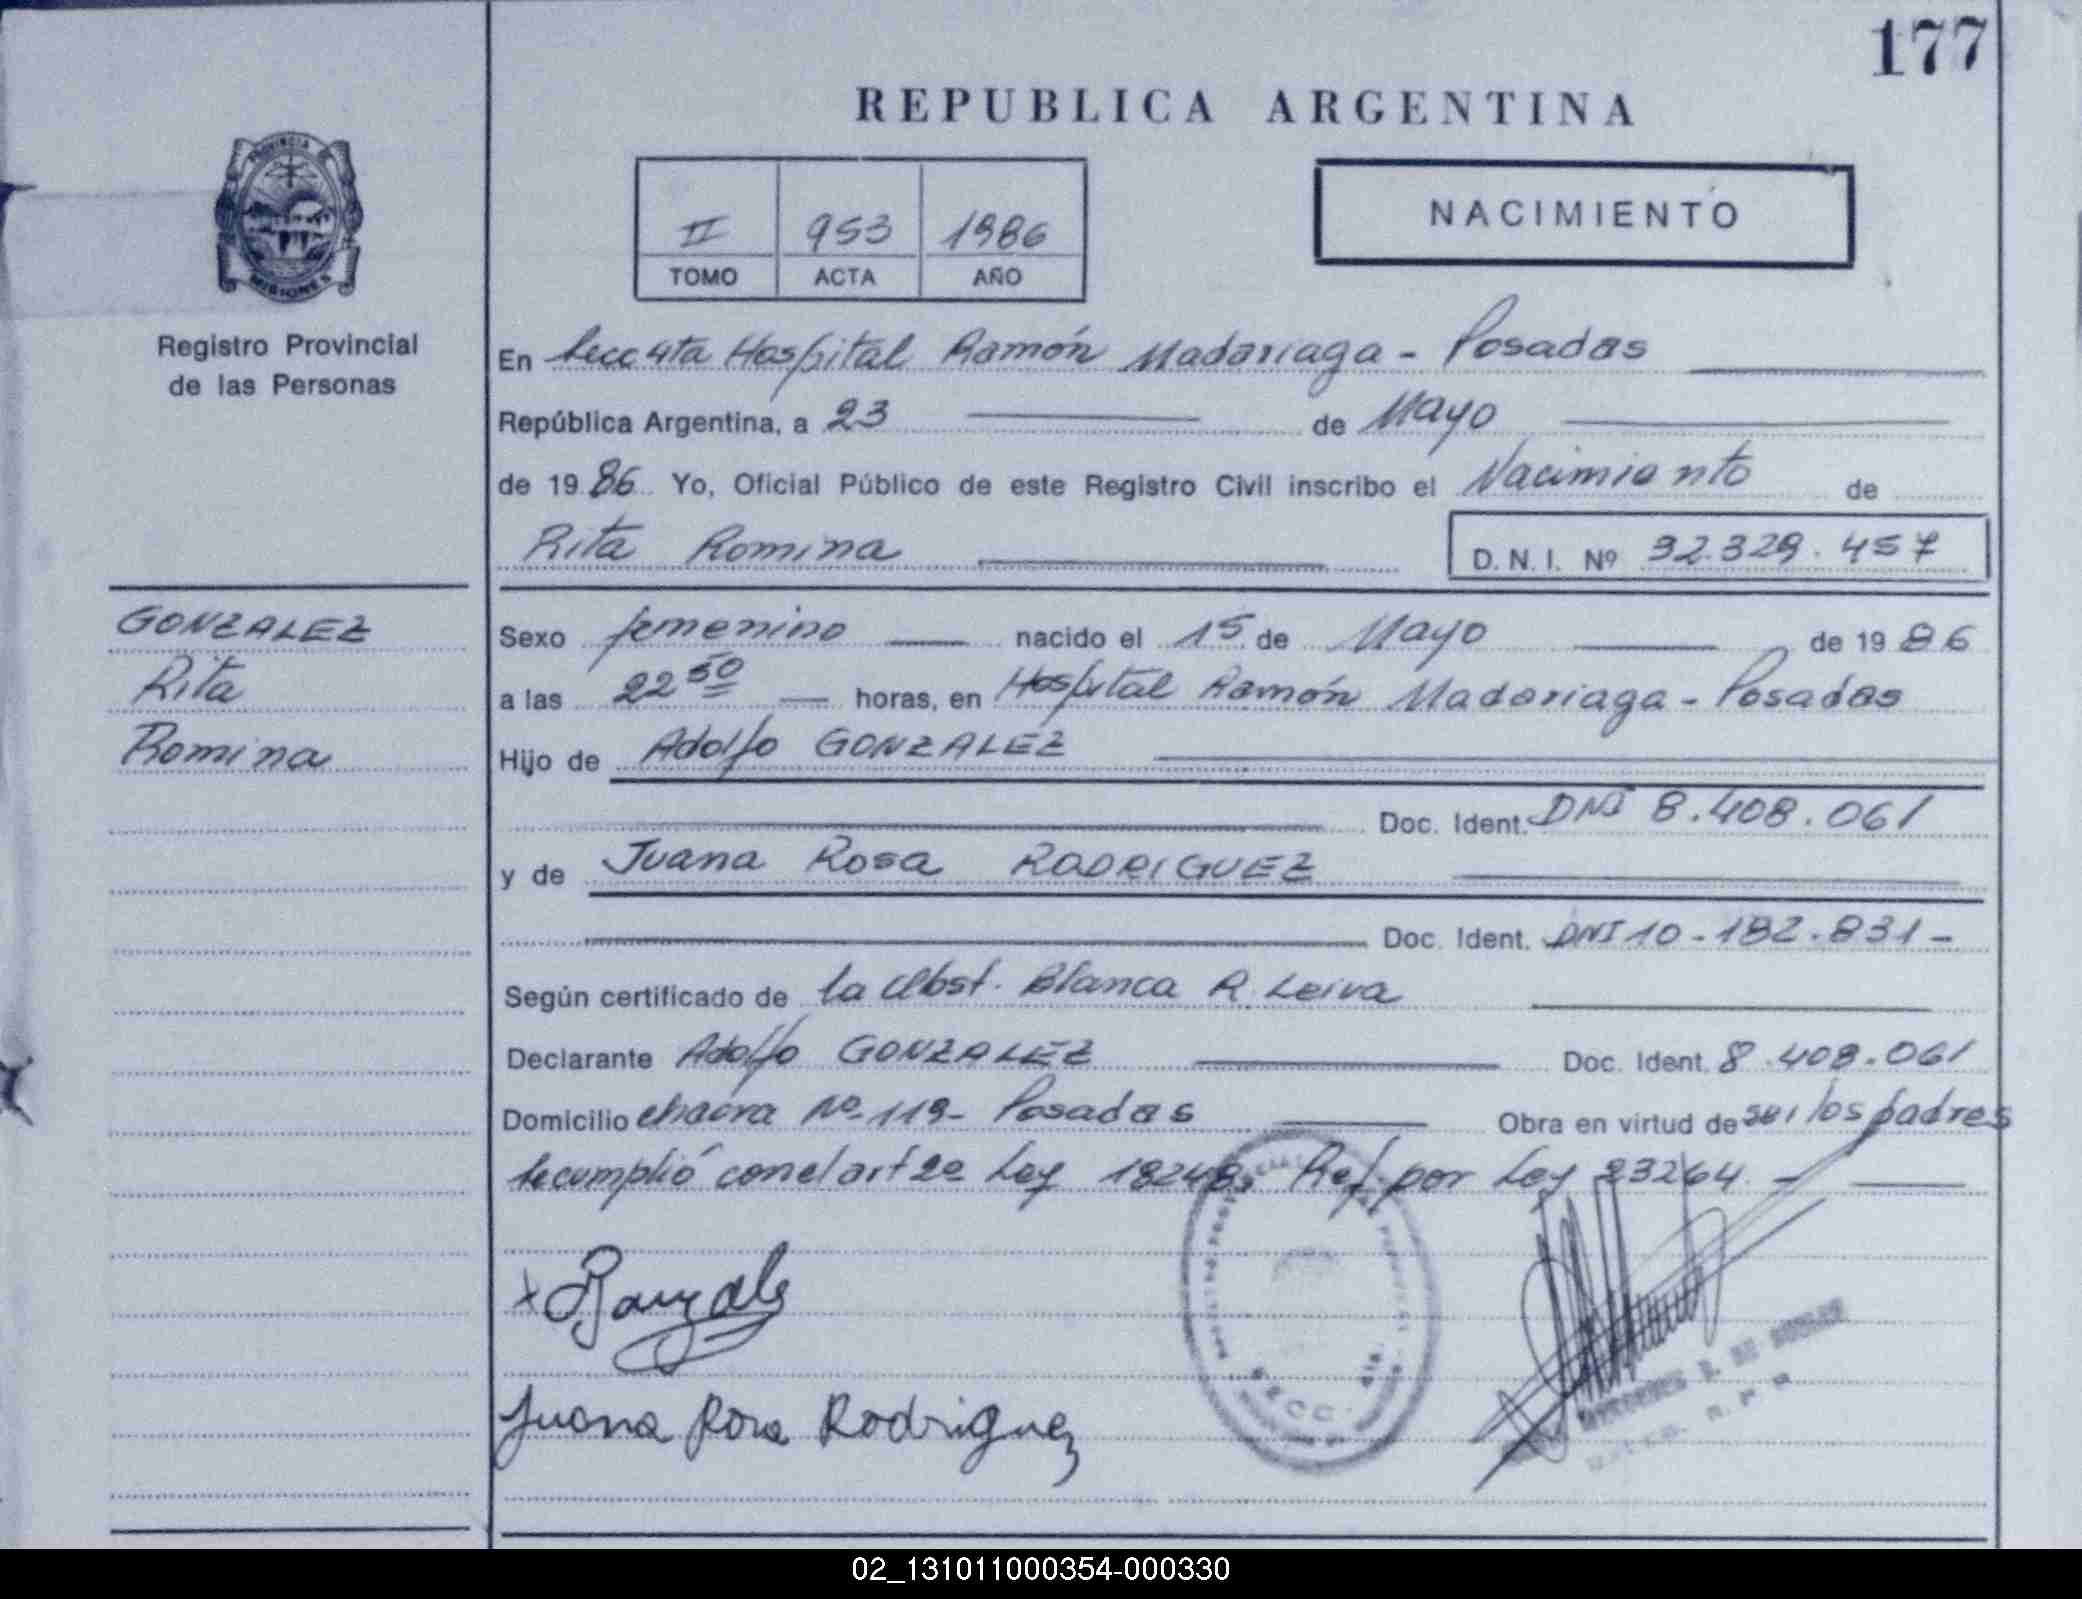 177
REPUBLICA ARGENTINA
PROVINCIA DE
MISIONES
Registro Provincial
de las Personas
II 953 1986
TOMO ACTA AÑO
NACIMIENTO
En Secc 4ta Hospital Ramón Madariaga - Posadas
República Argentina, a 23 de Mayo
de 1986 Yo, Oficial Público de este Registro Civil inscribo el Nacimiento de
Rita Romina D. N. I. Nº 32.329.457
GONZALEZ
Rita
Romina
Sexo femenino nacido el 15 de Mayo de 1986
a las 22 50 horas, en Hospital Ramón Madariaga - Posadas
Hijo de Adolfo GONZALEZ
Doc. Ident. DNI 8.408.061
y de Juana Rosa RODRIGUEZ
Doc. Ident. DNI 10-182.831-
Según certificado de la Obst. Blanca R. Leiva
Declarante Adolfo GONZALEZ Doc. Ident. 8.408.061
Domicilio chacra Nº 119- Posadas Obra en virtud de ser los padres
Se cumplió con el art 2º Ley 18248, Ref. por Ley 23264.-
SECC. 4ta.
Juana Rosa Rodriguez
02_131011000354-000330